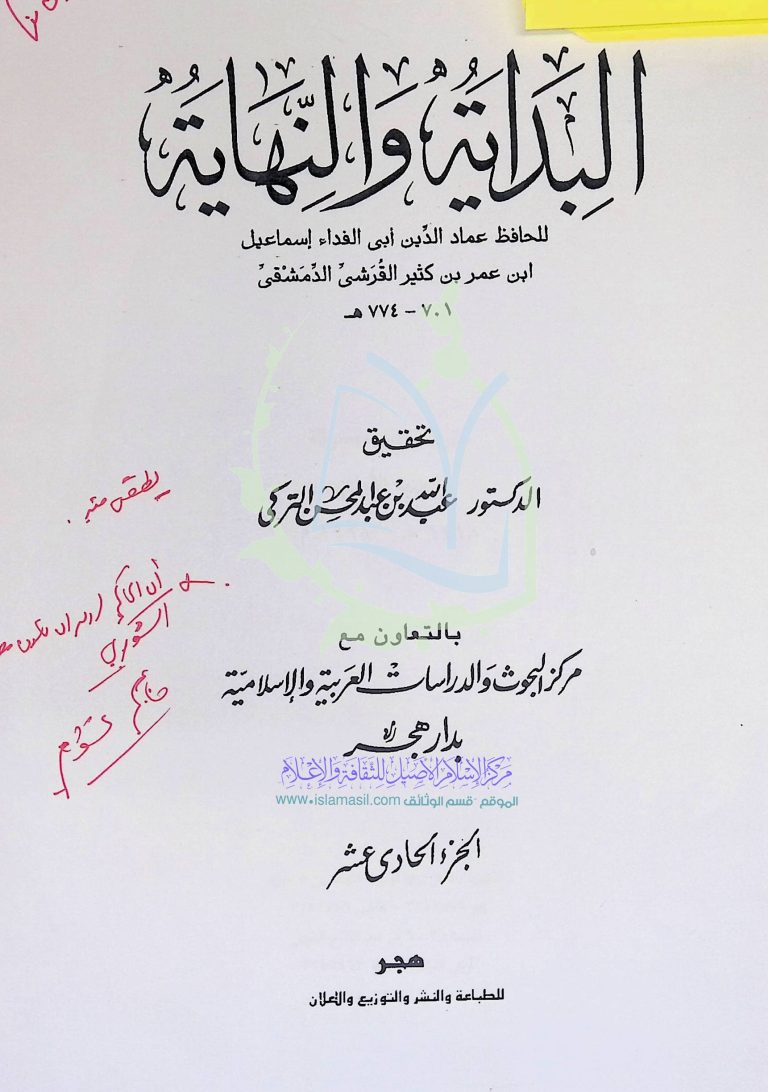 البَدَايَةُ وَالنِّهَايَةُ
للحافظ عماد الدِّين أبى الفداء إسماعيل
ابن عمر بن كثير القُرَشىِّ الدِّمَشْقىِّ
٧٠١ - ٧٧٤ هـ
تحقيق
الدكتور عبد الله بن عبد المحسن التركى
بالتعاون مع
مركز البحوث والدراسات العربية والإسلامية
بدار هجر
مركز الإسلام الأصيل للثقافة والإعلام
الموقع - قسم الوثائق www.islamasil.com
الجزء الحادى عشر
هجر
للطباعة والنشر والتوزيع والإعلان